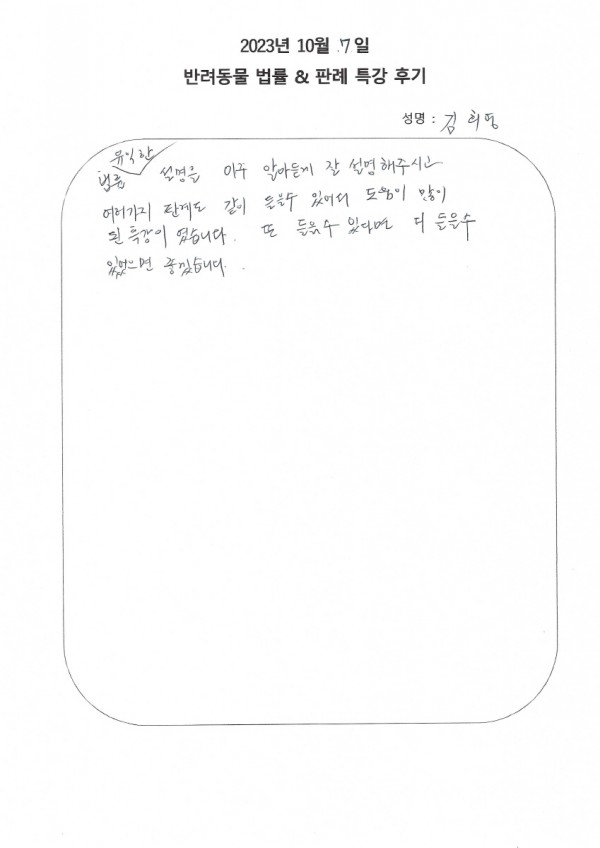 2023년 10월 7일
반려동물 법률 & 판례 특강 후기
성명 : 김희영
유익한
법률 설명을 아주 알아듣게 잘 설명해주시고
여러가지 판례도 같이 들을수 있어서 도움이 많이
된 특강이 였습니다. 또 들을수 있다면 더 들을수
있었으면 좋겠습니다.